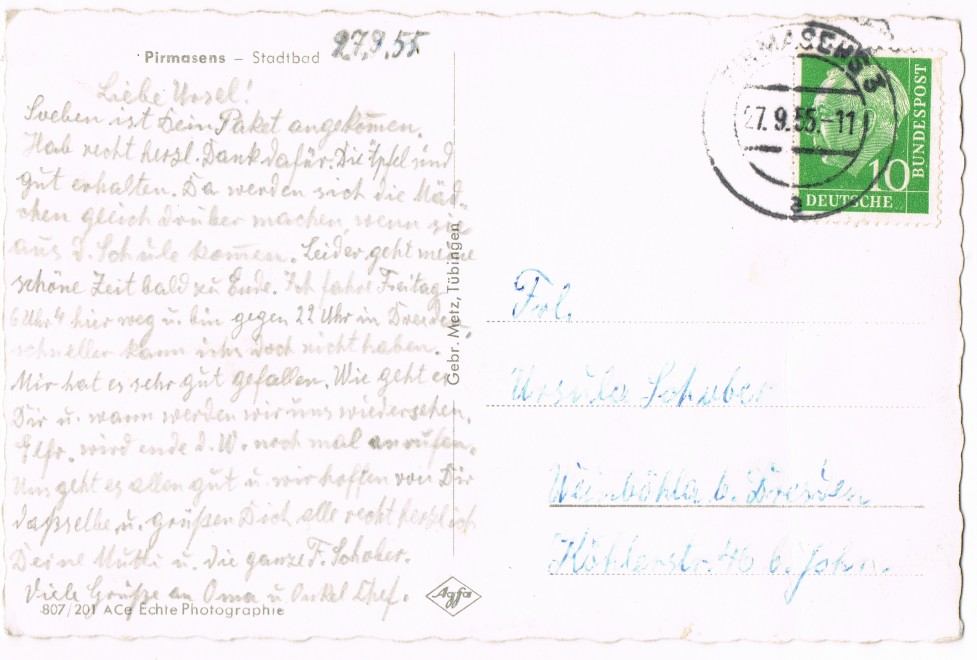 Pirmasens – Stadtbad
27.9.55
Liebe Ursel!
Soeben ist Dein Paket angekom̄en.
Hab recht herzl. Dank dafür. Die Äpfel sind
gut erhalten. Da werden sich die Mäd-
chen gleich drüber machen, wenn sie
aus d. Schule kom̄en. Leider geht meine
schöne Zeit bald zu Ende. Ich fahre Freitag
6 Uhr hier weg u. bin gegen 22 Uhr in Dresden,
schneller kann ichs doch nicht haben.
Mir hat es sehr gut gefallen. Wie geht es
Dir u. wann werden wir uns wiedersehen.
Elfr. wird ende d. W. noch mal anrufen.
Uns geht es allen gut u. wir hoffen von Dir
dasselbe u. grüßen Dich alle recht herzlich
Deine Mutti u. die ganze F. Schober.
Viele Grüße an Oma u Onkel Chef.
807/201 ACe Echte Photographie
Gebr. Metz, Tübingen
Agfa
PIRMASENS 3
27.9.55-11
a
10
DEUTSCHE
BUNDESPOST
Frl.
Ursula Schober
Weinböhla b. Dresden
Köhlerstr. 46 b. John.